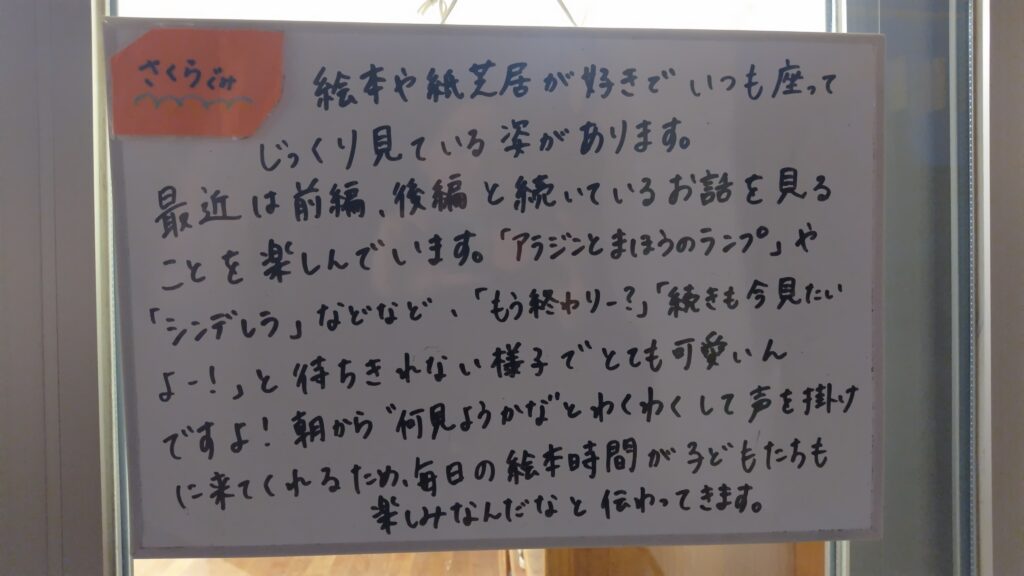 さくらぐみ
絵本や紙芝居が好きでいつも座って
じっくり見ている姿があります。
最近は前編、後編と続いているお話を見る
ことを楽しんでいます。「アラジンとまほうのランプ」や
「シンデレラ」などなど、「もう終わりー?」「続きも今見たい
よー!」と待ちきれない様子でとても可愛いん
ですよ!朝から“何見ようかな”とわくわくして声を掛け
に来てくれるため、毎日の絵本時間が子どもたちも
楽しみなんだなと伝わってきます。